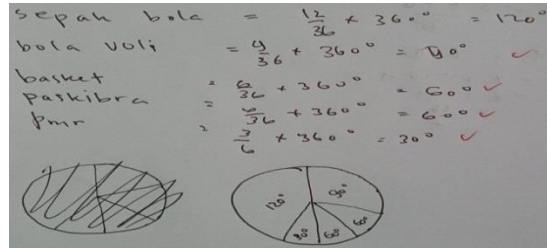 sepak bola = 12/36 × 360° = 120°
bola voli = 9/36 × 360° = 90° ✓
basket = 6/36 × 360° = 60° ✓
paskibra = 6/36 × 360° = 60° ✓
pmr = 3/6 × 360° = 30° ✓
120° 90°
30° 60° 60°